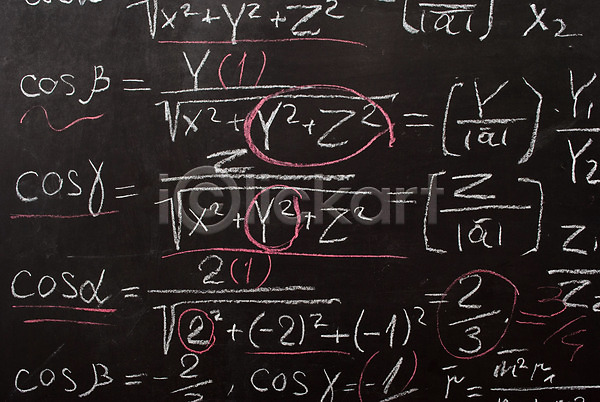 √X²+Y²+Z² (|ā|) X₂
cos β = Y (1) / √X²+Y²+Z² = (Y / |ā|) Y₁ / Y₂
cos γ = Z / √X²+Y²+Z² (Z / |ā|) Z₁ / Z₂
cos α = 2 (1) / √2²+(-2)²+(-1)² = 2/3 = 3
cos β = -2/3, cos γ = -1
iclickart